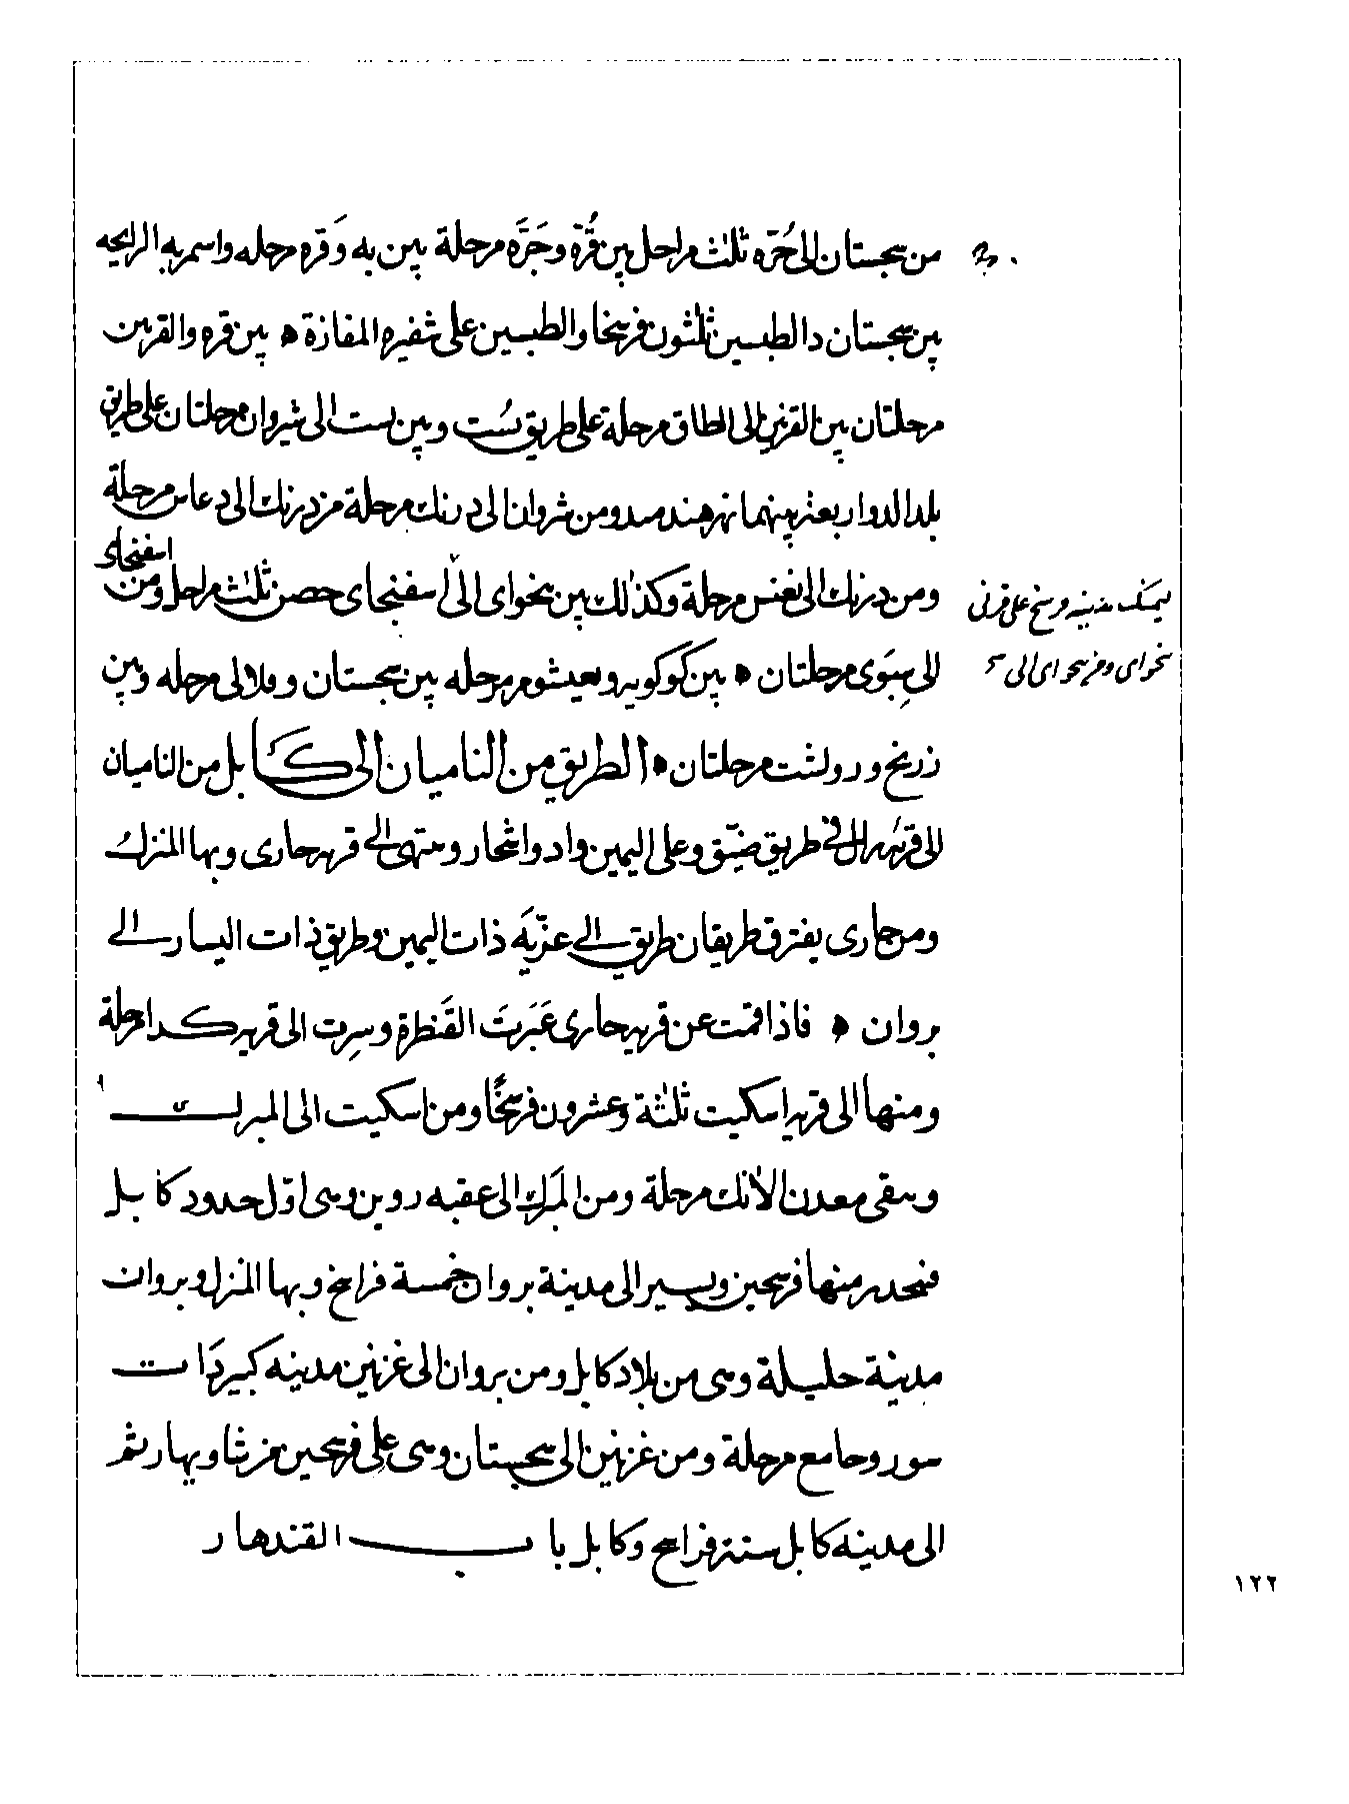 من سجستان الى حُرّه ثلث مراحل بين قُرّة وجَرَّه مرحلة بين به وَقره مرحله واسم به الرايحه
بين سجستان دالطبسين ثلثون فرسخا والطبسين على شفيره المفازة ه بين قره والقرىين
مرحلتان بين القرنين الى الطاق مرحلة على طريق بُست وبين بست الى شروان مرحلتان على طريق
بلد الدوار بعتر بينهما نهر هندمىد ومن شروان الى درنك مرحلة من درنك الى دعاس مرحلة
ومن درنك الى نغنس مرحلة وكذلك بين بخواى الى اسفنجاى حصن ثلث مراحل ومن اسفنجاى
الى سِبَوى مرحلتان ه بين كوكويه و مرحله بين سجستان و الى مرحله وبين
زرنخ و رولشت مرحلتان ه الطريق من الناميان الى كابل من الناميان
الى قرية فى طريق ضيّق وعلى اليمين واد واشجار ومنتهى الى قريه جارى وبها المنزل
ومن جارى يفترق طريقان طريق الى عزيه ذات اليمين وطريق ذات اليسار الى
بروان ه فاذا قمت عن قريه جارى عَبَرتَ القَنطرة وسِرت الى قريه كدا مرحلة
ومنها الى قريه اسكيت ثلثة وعشرون فرسخًا ومن اسكيت الى
وسقى معدن الانك مرحلة ومن الى عقبه روين وهى اوّل حدود كابل
فنحدر منها فرسخين ويسير الى مدينة بروان خمسة فراسخ وبها المنزل وبروان
مدينة جليلة وهى من بلاد كابل ومن بروان الى غزنين مدينه كبير ذات
سور وجامع مرحلة ومن غزنين الى سجستان وهى على فرسخين من ثم
الى مدينه كابل ستة فراسخ وكابل باب القندهار
مدينه فرسخ على قرنى
بخواى ومن بحواى الى
١٢٢